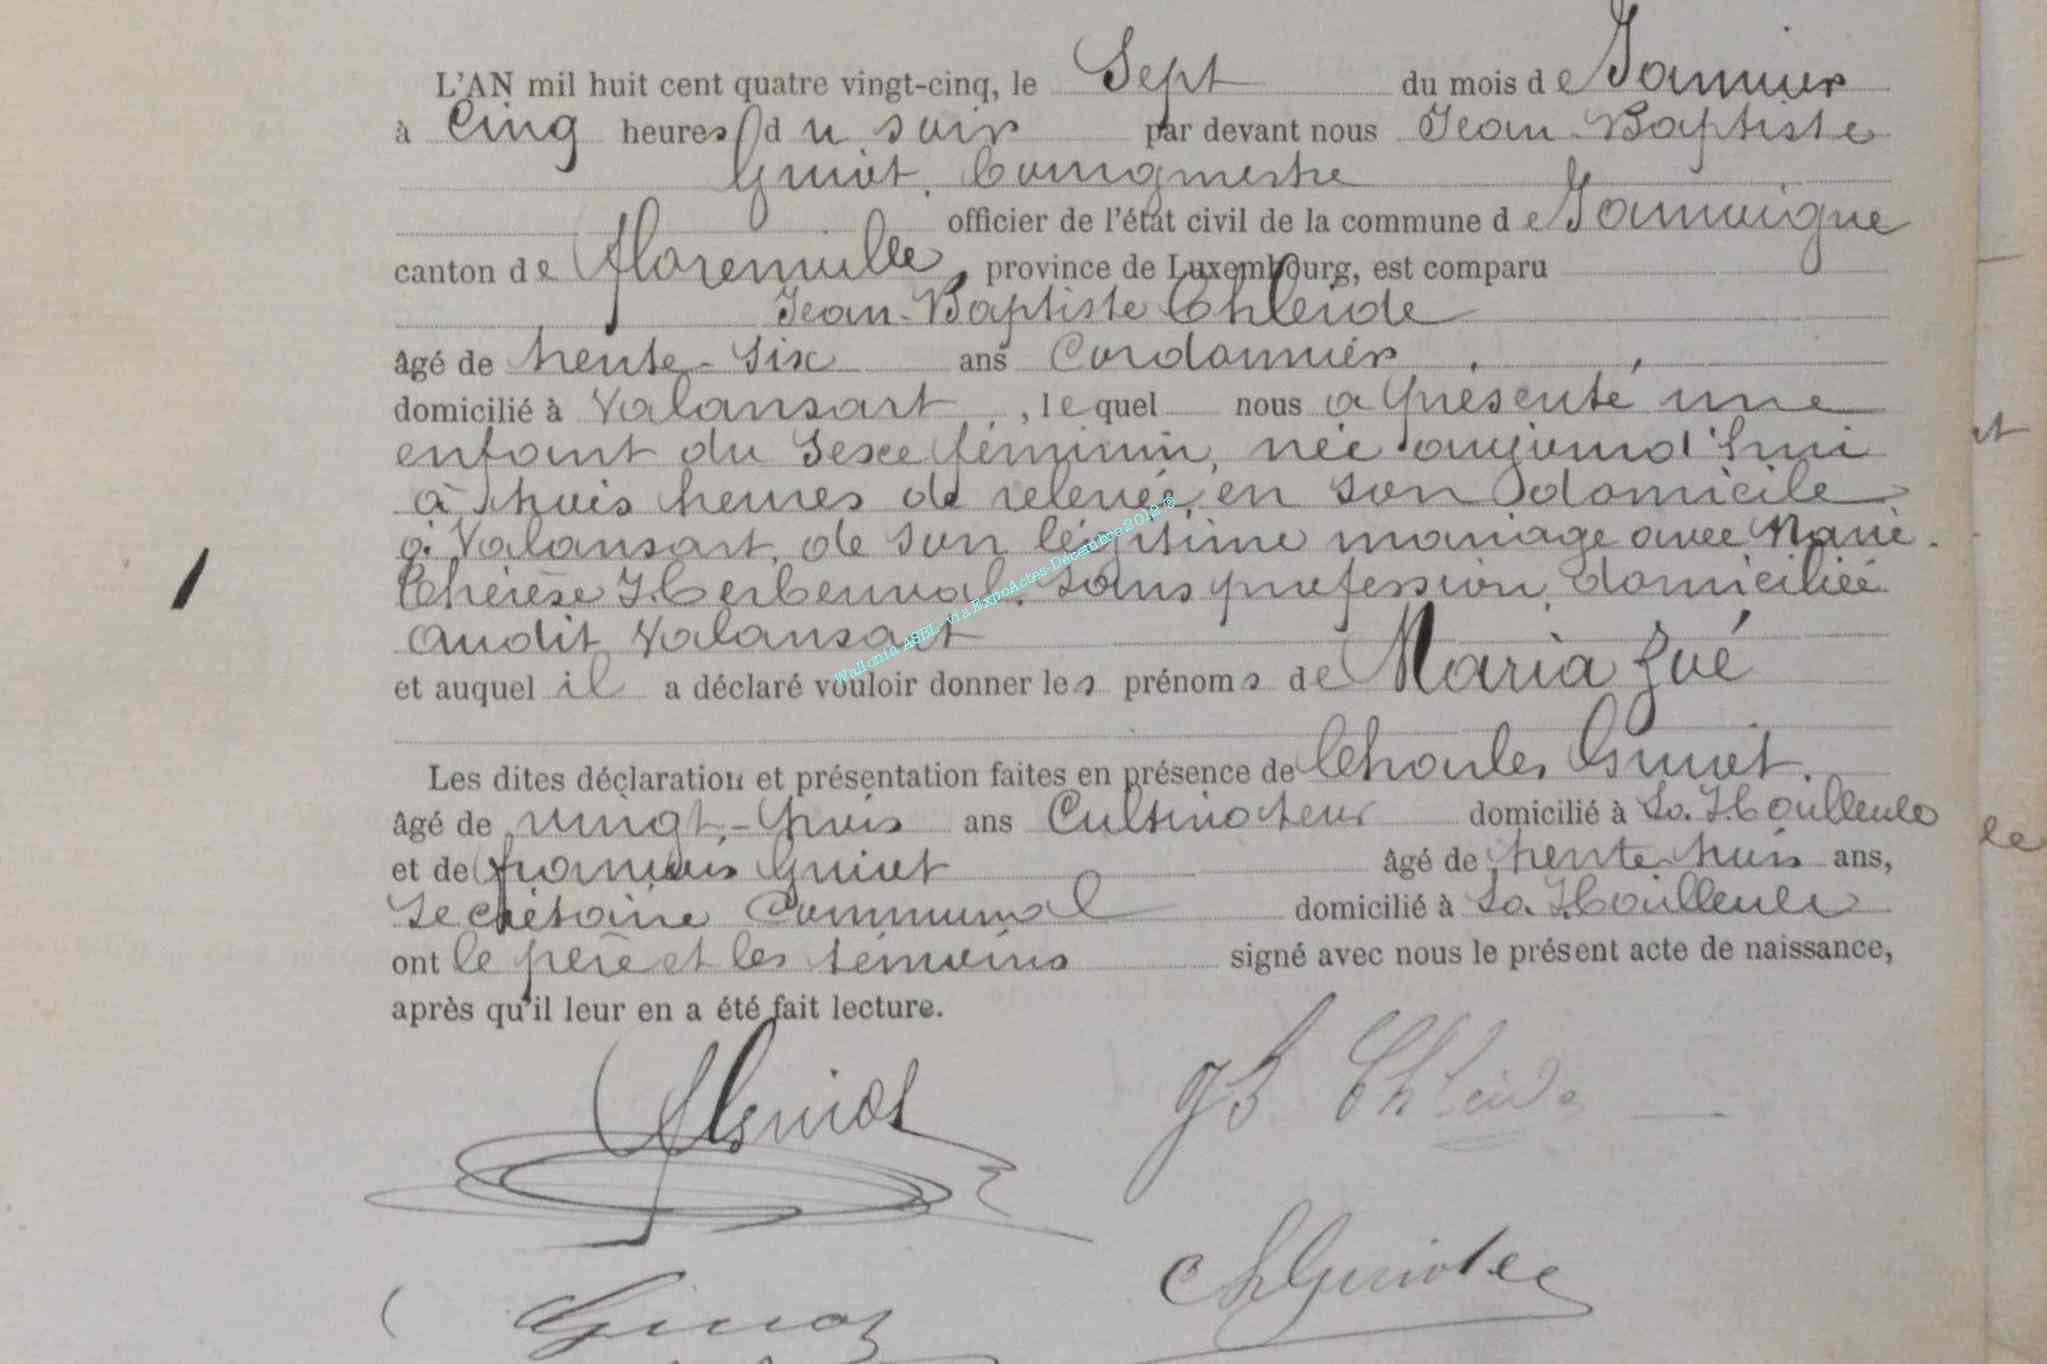 L'AN mil huit cent quatre vingt-cinq, le Sept du mois de Janvier
à Cinq heures du soir par devant nous Jean-Baptiste
Guiot, bourgmestre
officier de l'état civil de la commune de Jamoigne
canton de Florenville, province de Luxembourg, est comparu
Jean-Baptiste Thleide
âgé de trente-six ans Cordonnier
domicilié à Valansart, lequel nous a présenté une
enfant du sexe féminin, née aujourd'hui
à trois heures de relevée, en son domicile
à Valansart, de son légitime mariage avec Marie
Thérèse Herbeuval, sans profession, domiciliée
audit Valansart
et auquel il a déclaré vouloir donner les prénoms de Maria Zoé
Les dites déclaration et présentation faites en présence de Charles Guiot,
âgé de vingt-trois ans Cultivateur domicilié à La Hailleule
et de François Guiot âgé de trente trois ans,
Secrétaire Communal domicilié à La Hailleule
ont le père et les témoins signé avec nous le présent acte de naissance,
après qu'il leur en a été fait lecture.
Guiot
JB Thleide
Ch Guiot
Guiot
Wallonia ASBL - via ExpoActes-Décembre 2012 ©
et
le